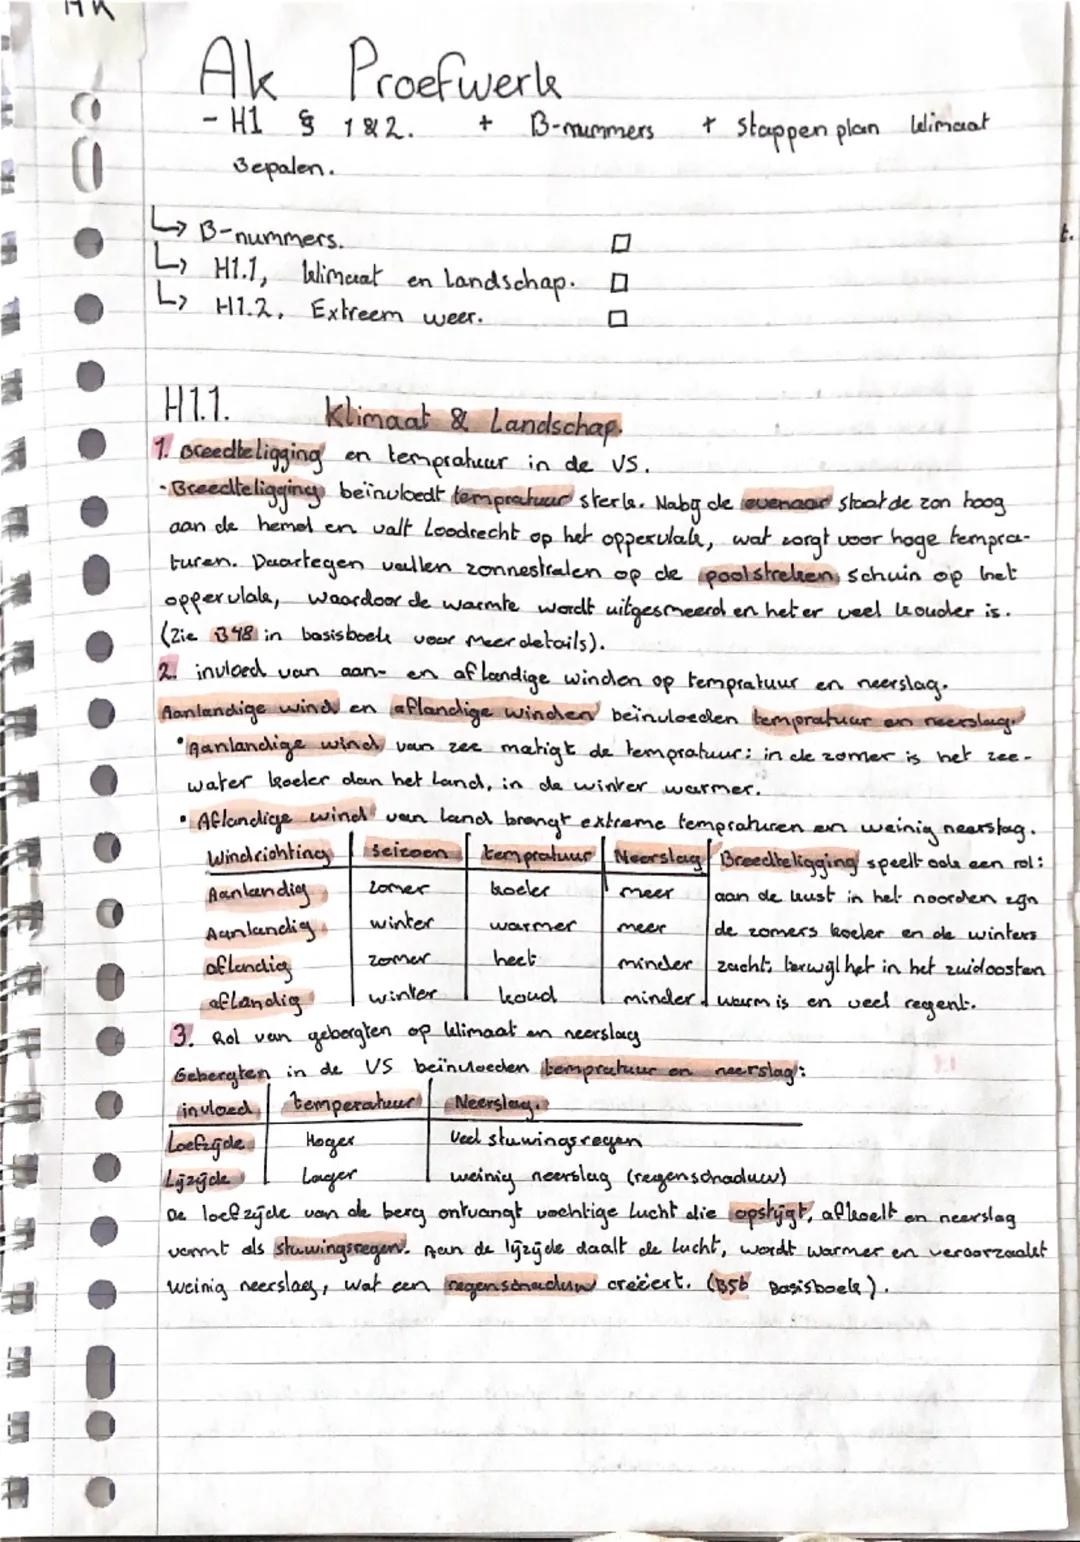 AK
Ak Proefwerk
- H1 § 1 & 2. + B-nummers + Stappen plan klimaat
Bepalen.
↳ B-nummers. □
↳ H1.1, klimaat en landschap. □
↳ H1.2, Extreem weer. □
t.
H1.1. Klimaat & Landschap.
1. Breedteligging en tempratuur in de VS.
- Breedteligging beïnvloedt tempratuur sterk. Nabij de evenaar staat de zon hoog
aan de hemel en valt loodrecht op het oppervlak, wat zorgt voor hoge tempra-
turen. Daartegen vallen zonnestralen op de poolstreken schuin op het
oppervlak, waardoor de warmte wordt uitgesmeerd en het er veel kouder is.
(Zie B48 in basisboek voor meer details).
2. invloed van aan- en aflandige winden op tempratuur en neerslag.
Aanlandige wind en aflandige winden beïnvloeden tempratuur en neerslag.
• Aanlandige wind van zee matigt de tempratuur: in de zomer is het zee-
water koeler dan het land, in de winter warmer.
• Aflandige wind van land brengt extreme tempraturen en weinig neerslag.
Windrichting | seizoen | tempratuur | Neerslag | Breedteligging speelt ook een rol:
Aanlandig | zomer | koeler | meer | aan de kust in het noorden zijn
Aanlandig | winter | warmer | meer | de zomers koeler en de winters
aflandig | zomer | heet | minder | zacht, terwijl het in het zuidoosten
aflandig | winter | koud | minder | warm is en veel regent.
3. Rol van gebergten op klimaat en neerslag
Gebergten in de VS beïnvloeden tempratuur en neerslag:
invloed | temperatuur | Neerslag.
Loefzijde | Hoger | Veel stuwingsregen
Lijzijde | Lager | weinig neerslag (regenschaduw)
De loefzijde van de berg ontvangt vochtige lucht die opstijgt, afkoelt en neerslag
vormt als stuwingsregen. Aan de lijzijde daalt de lucht, wordt warmer en veroorzaakt
weinig neerslag, wat een regenschaduw creëert. (B56 Basisboek).